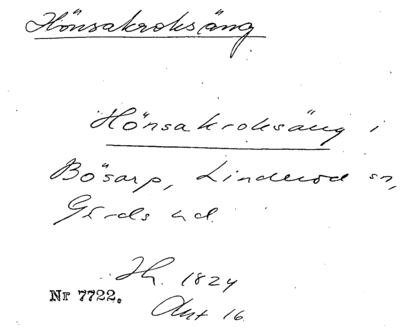 Hönsakroksäng
Hönsakroksäng i
Bösarp, Linderöd sn,
Gärds hd.
Jh. 1824
Akt 16.
Nr 7722.